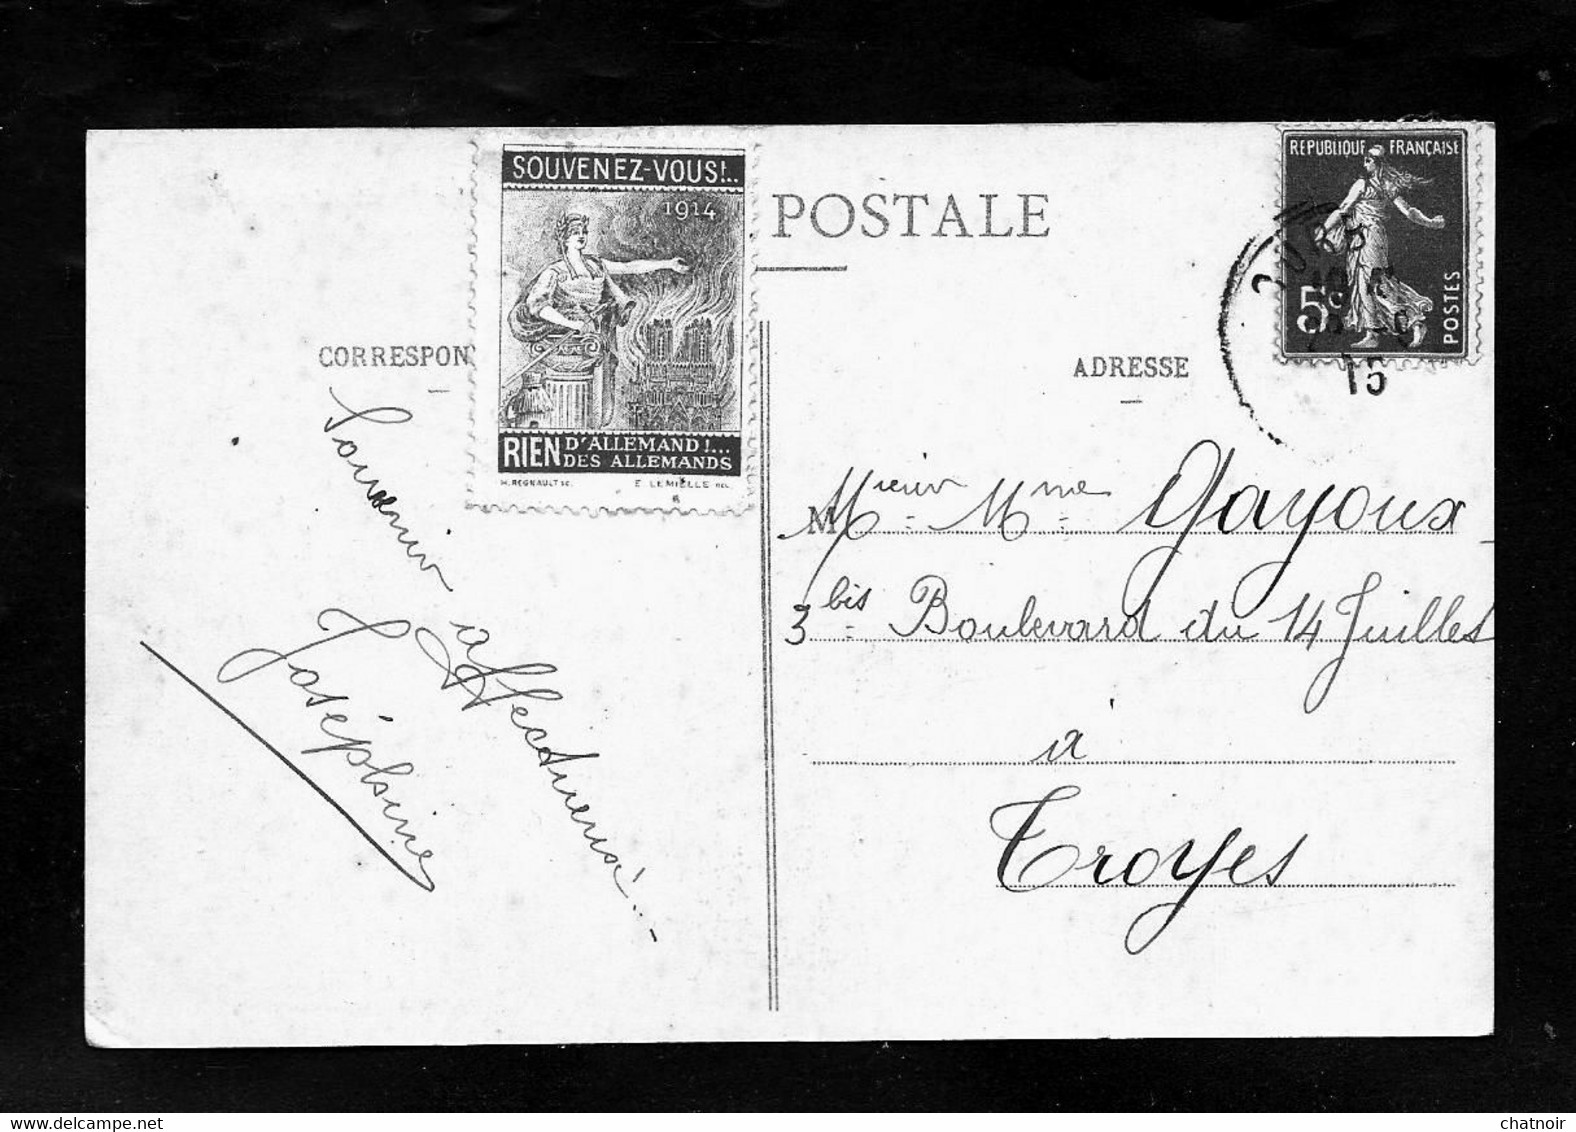 SOUVENEZ-VOUS!..
1914
RIEN D'ALLEMAND!...
DES ALLEMANDS
H. REGNAULT SC. E. LEMIELLE DEL.
POSTALE
REPUBLIQUE FRANÇAISE
5c
POSTES
15
CORRESPON
ADRESSE
Souvenir affectueux
Joséphine
M Mr et Mme Gayoux
3 bis Boulevard du 14 Juillet
à
Troyes
chatnoir